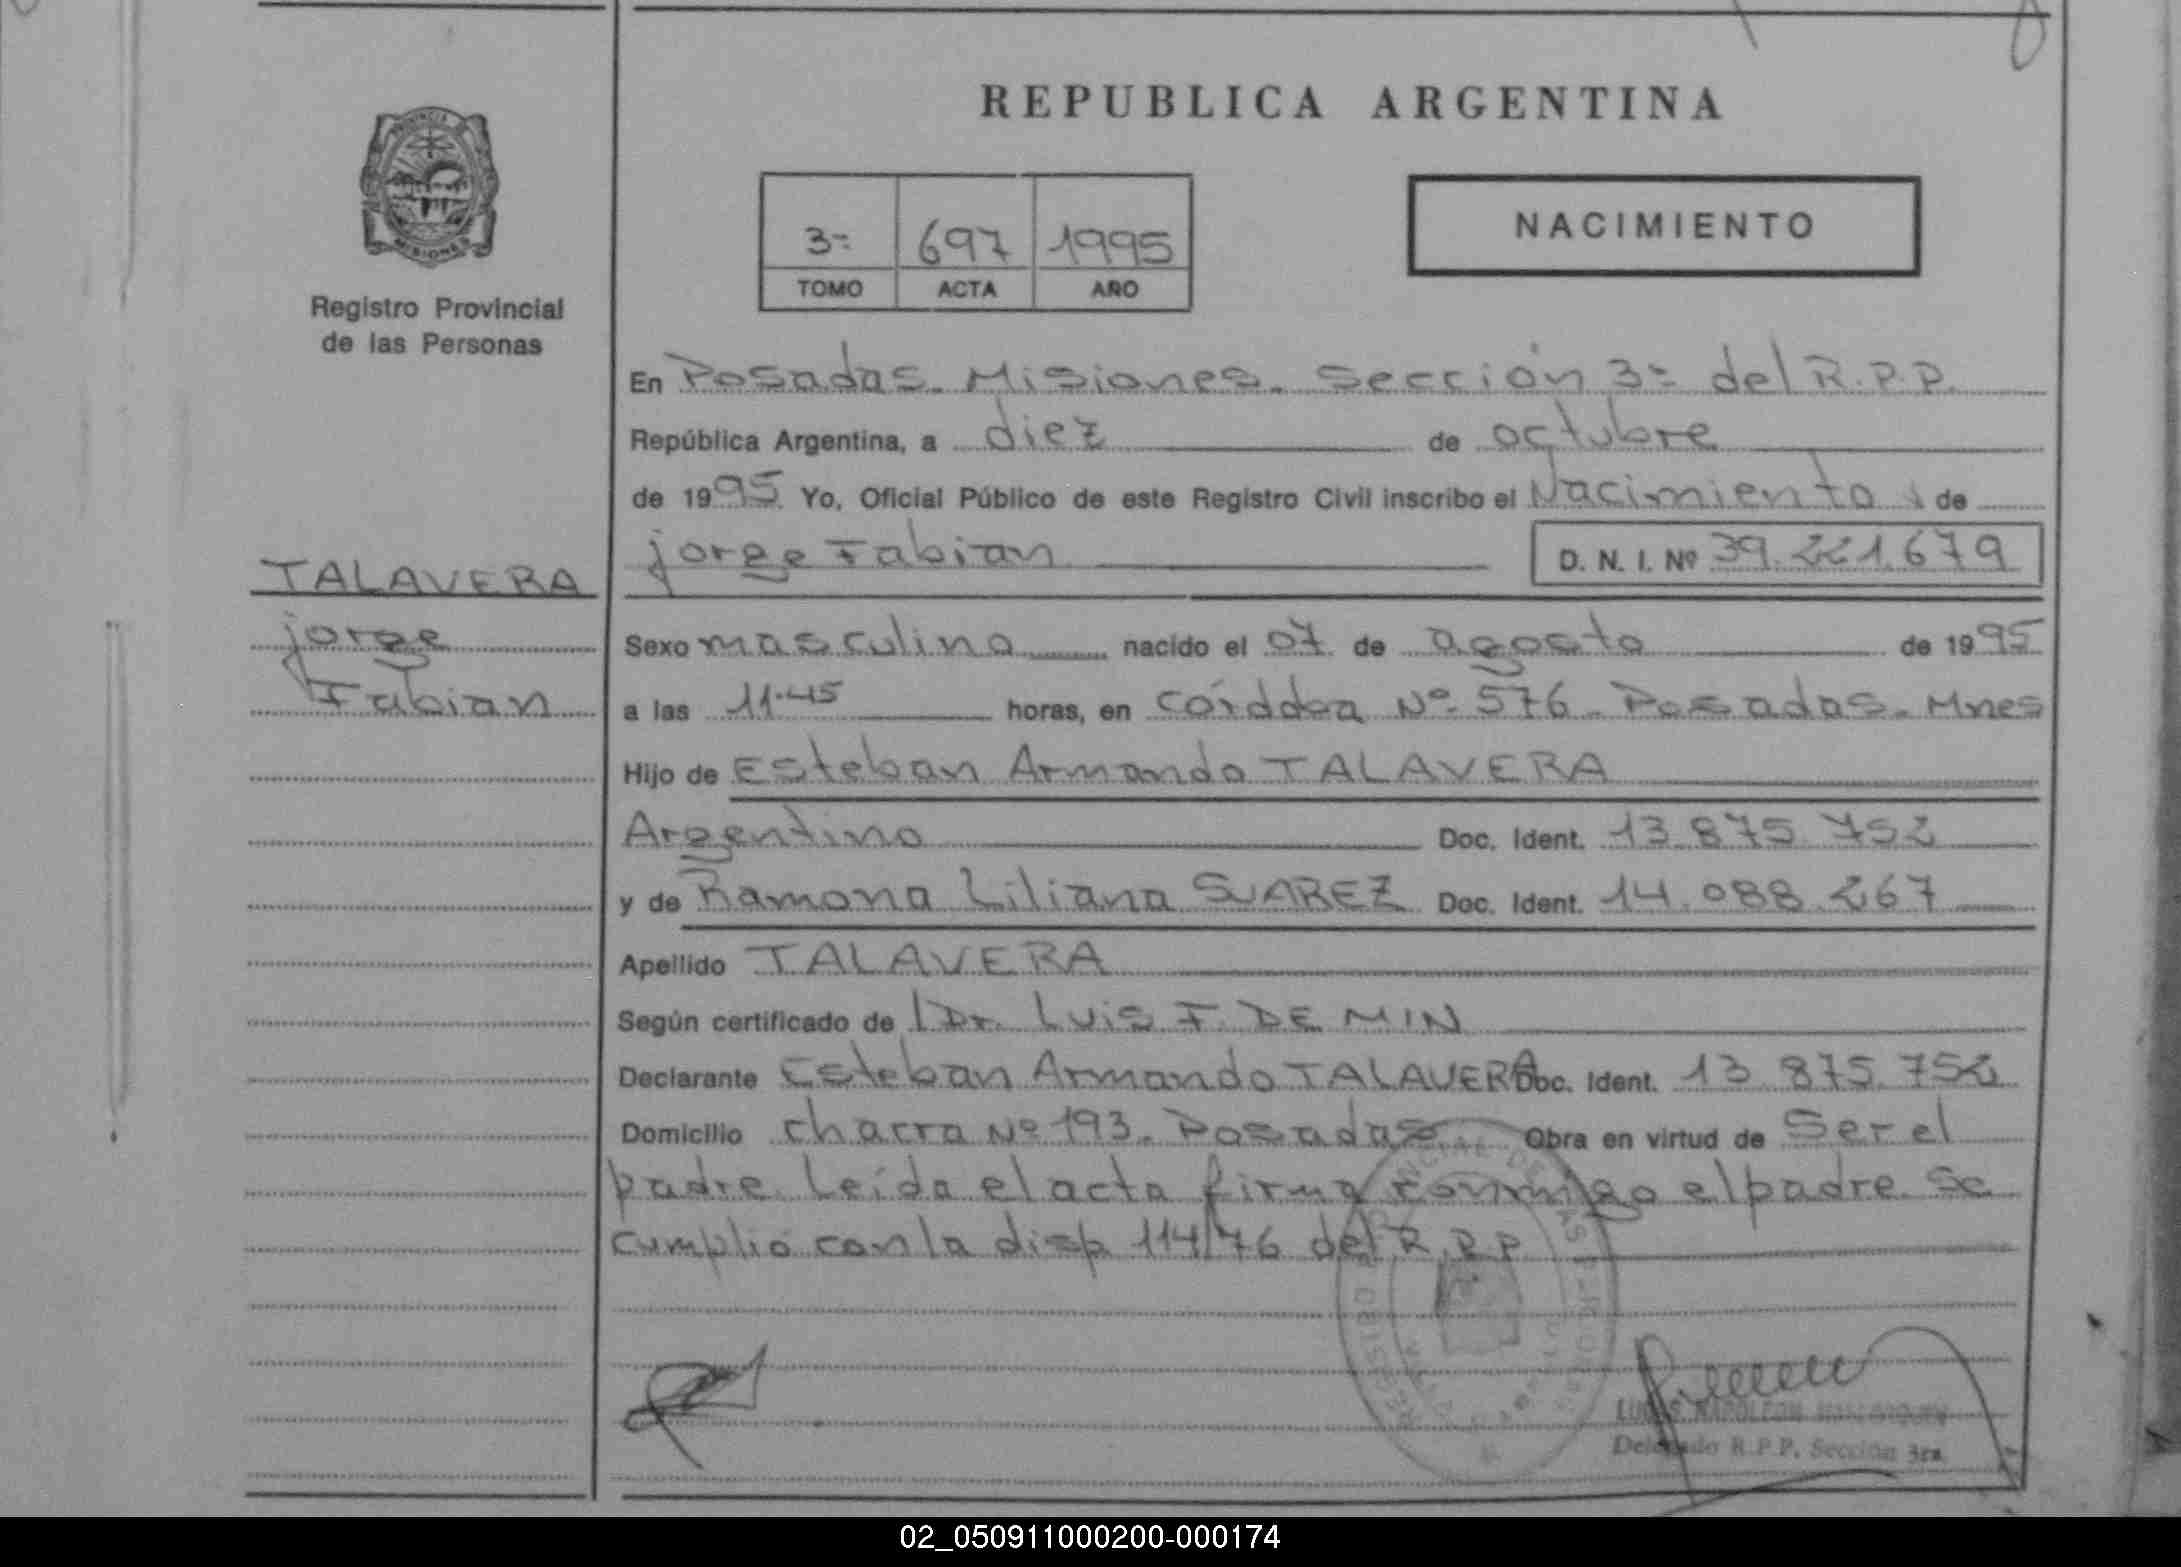 REPUBLICA ARGENTINA
PROVINCIA
MISIONES
Registro Provincial
de las Personas
3= 697 1995
TOMO ACTA AÑO
NACIMIENTO
En Posadas. Misiones. Sección 3= del R.P.P.
República Argentina, a diez de octubre
de 1995 Yo, Oficial Público de este Registro Civil inscribo el Nacimiento de
jorge Fabian D. N. I. Nº 39.221.679
TALAVERA
jorge
Fabian
Sexo masculino nacido el 07 de agosto de 1995
a las 11.45 horas, en Córddoa Nº 576. Posadas. Mnes
Hijo de Esteban Armando TALAVERA
Argentino Doc. Ident. 13.875.752
y de Ramona Liliana SUAREZ Doc. Ident. 14.088.267
Apellido TALAVERA
Según certificado de Dr. Luis F. DE MIN
Declarante Esteban Armando TALAVERA Doc. Ident. 13.875.752
Domicilio chacra Nº 193. Posadas Obra en virtud de Ser el
padre. Leída el acta firma conmigo el padre. Se
cumplió con la disp 114/76 del R.P.P
NAPOLEON
Delegado R.P.P. Sección 3ra
02_050911000200-000174